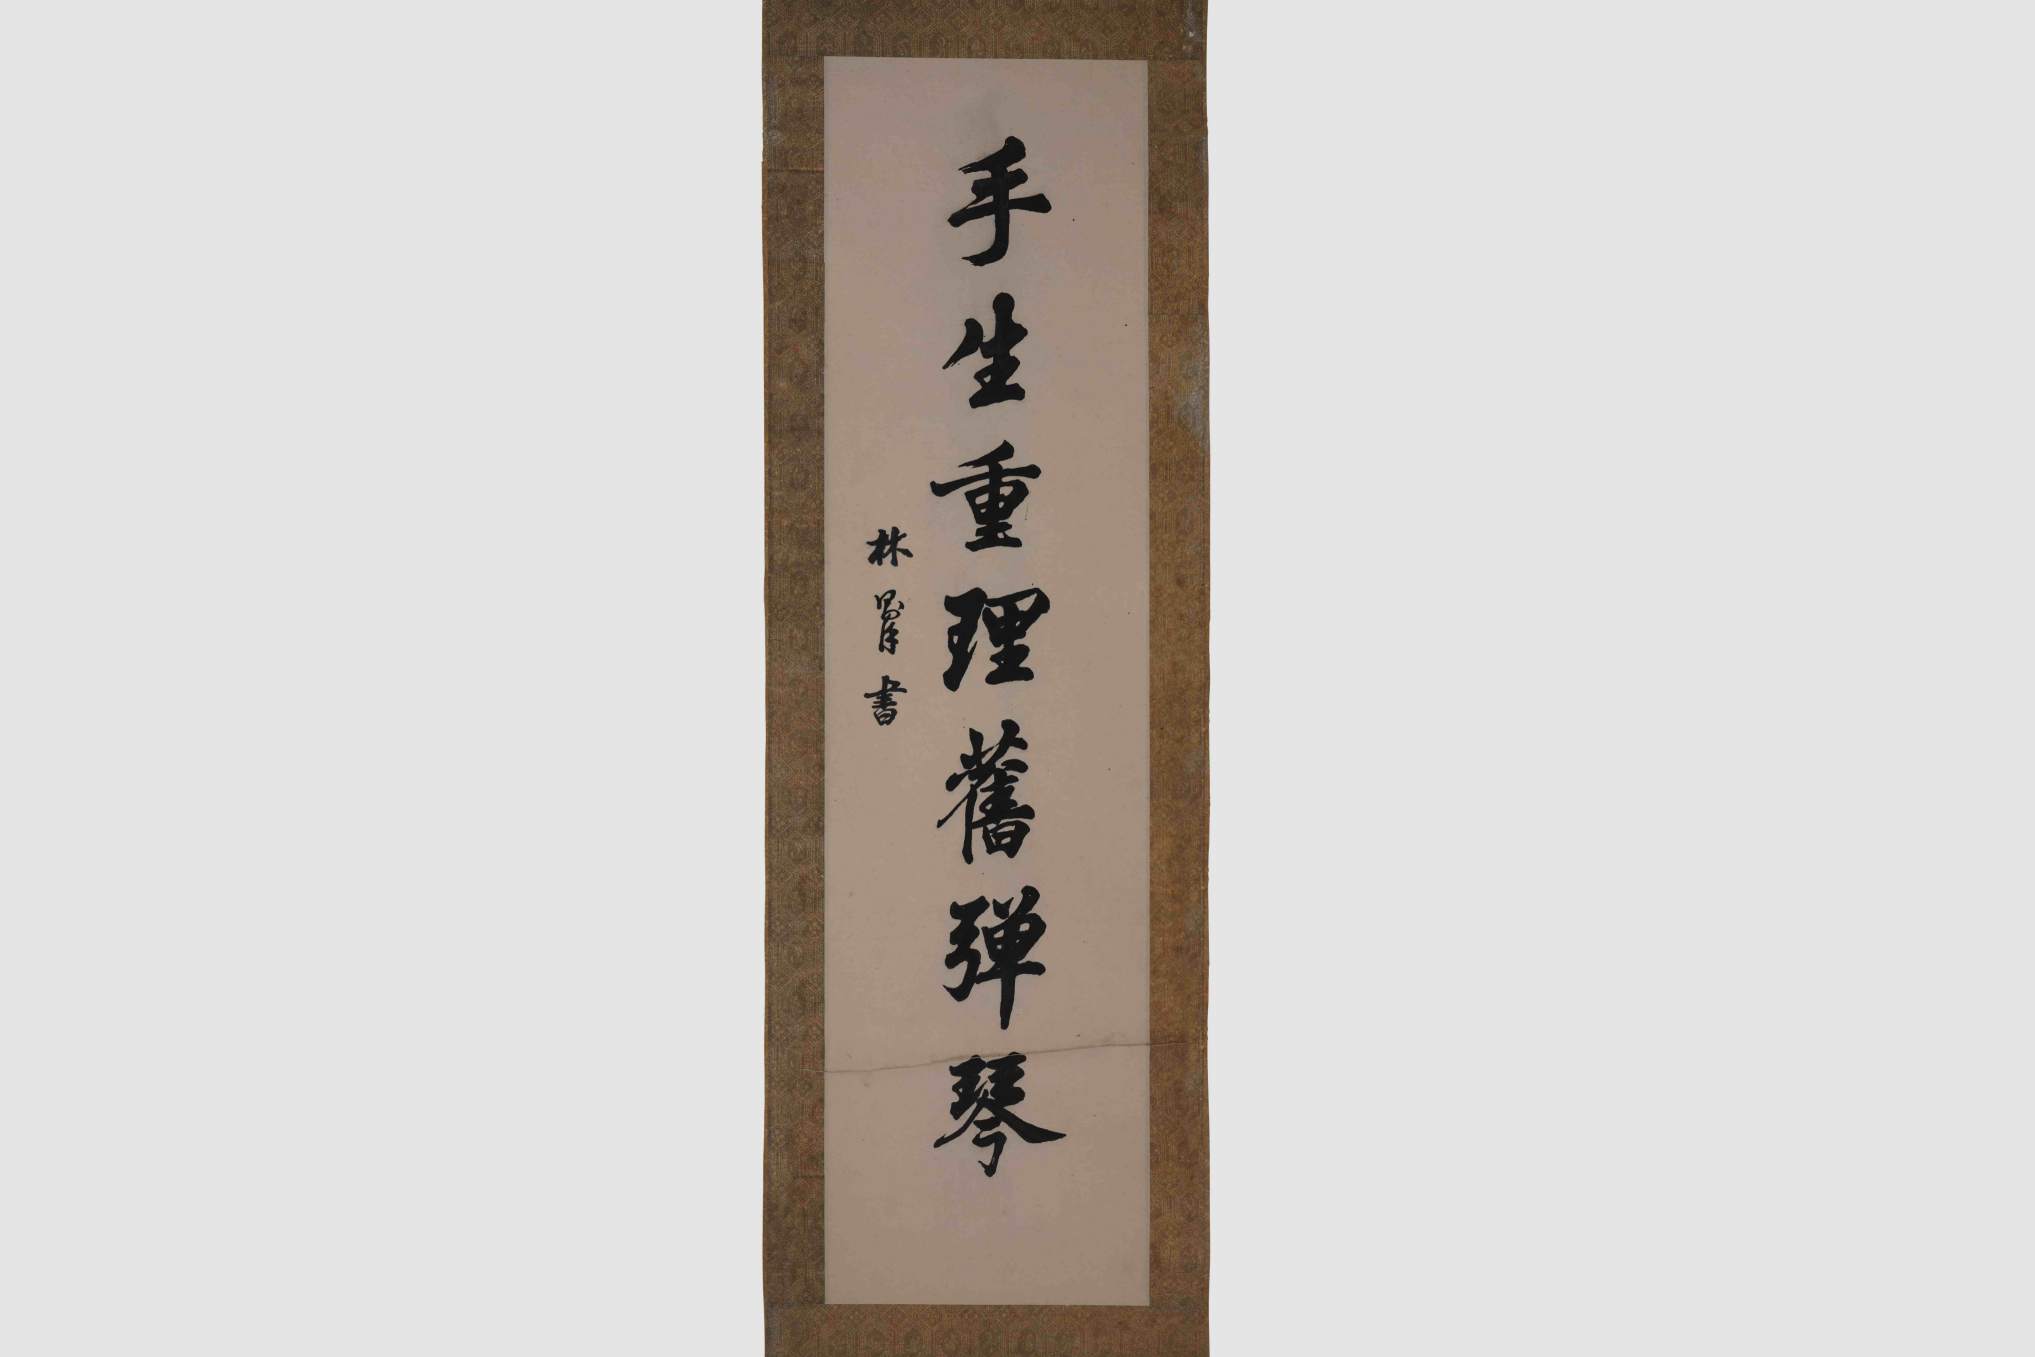 手生重理舊弹琴
林 書